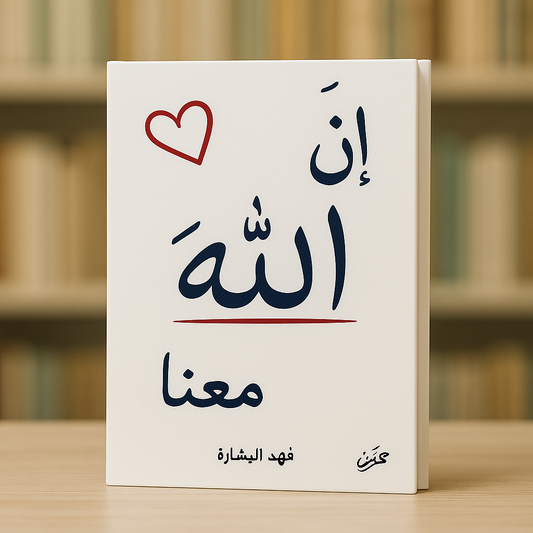 إنَ
اللّهَ
معنا
فهد البشارة